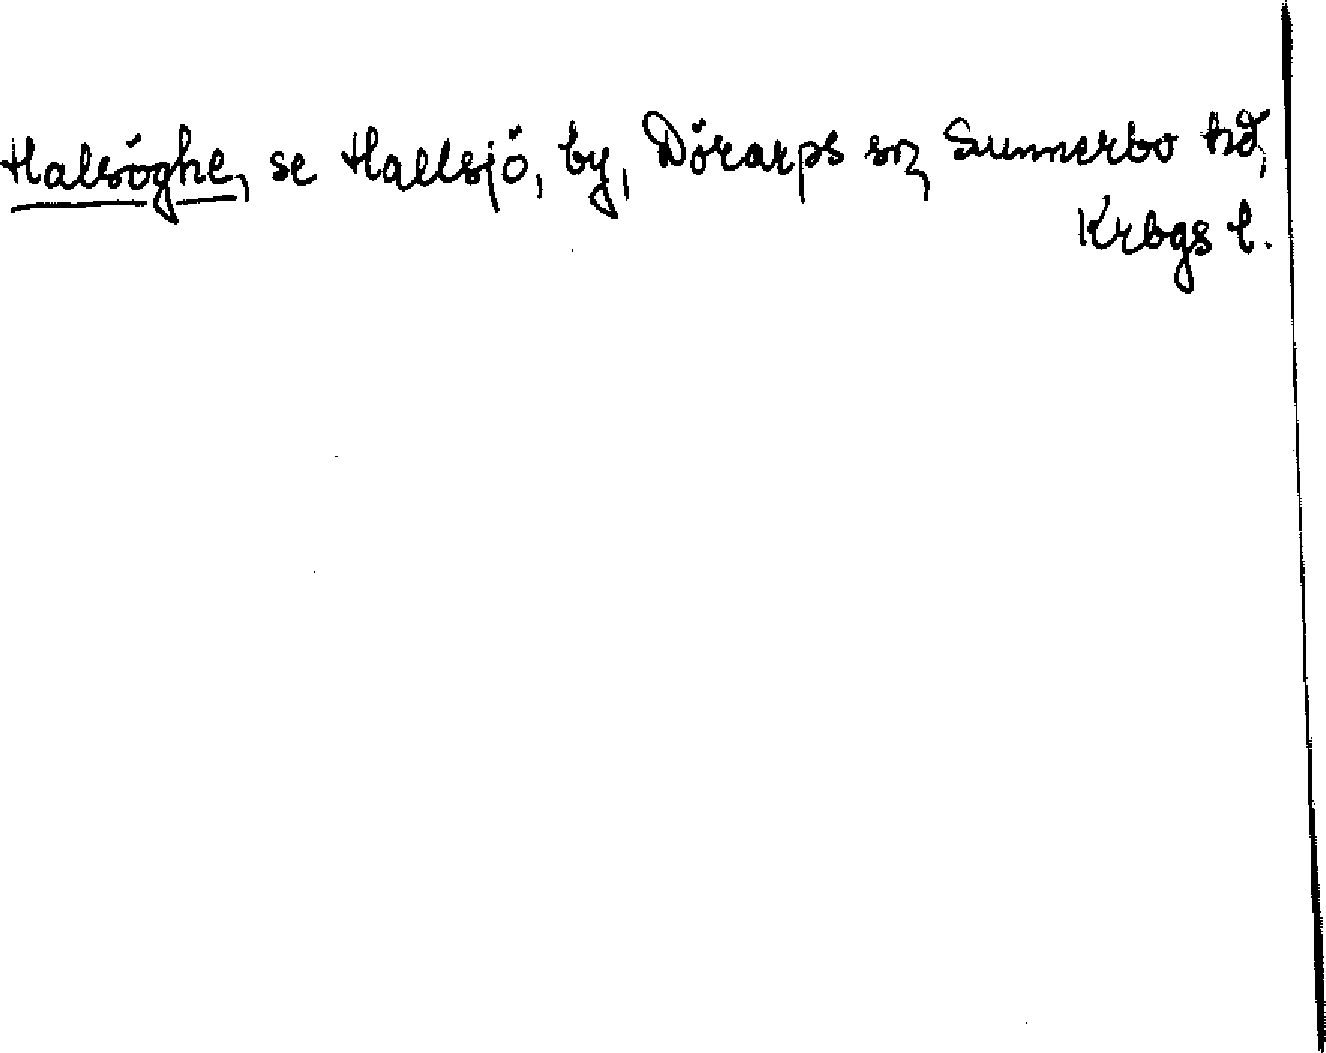 Halsöghe, se Hallsjö, by, Dörarps sn, Sunnerbo hd,
Krbgs l.